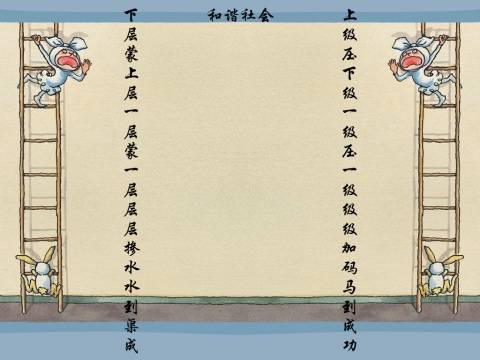 和谐社会
上级压下级一级压一级级级加码马到成功
下层蒙上层一层蒙一层层层掺水水到渠成